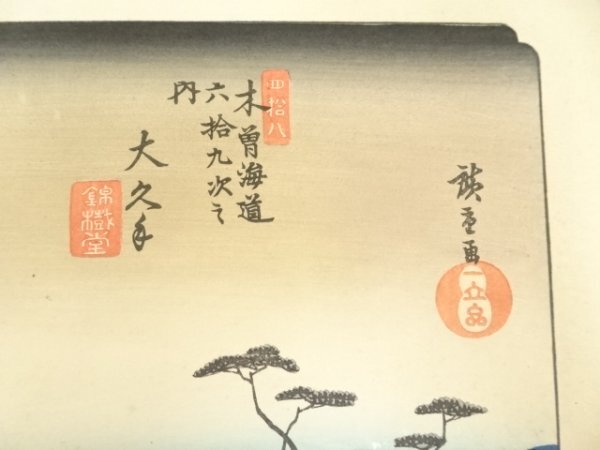 廣重画
一立斎
四拾八
木曽海道
六拾九次之
内
大久手
錦樹堂